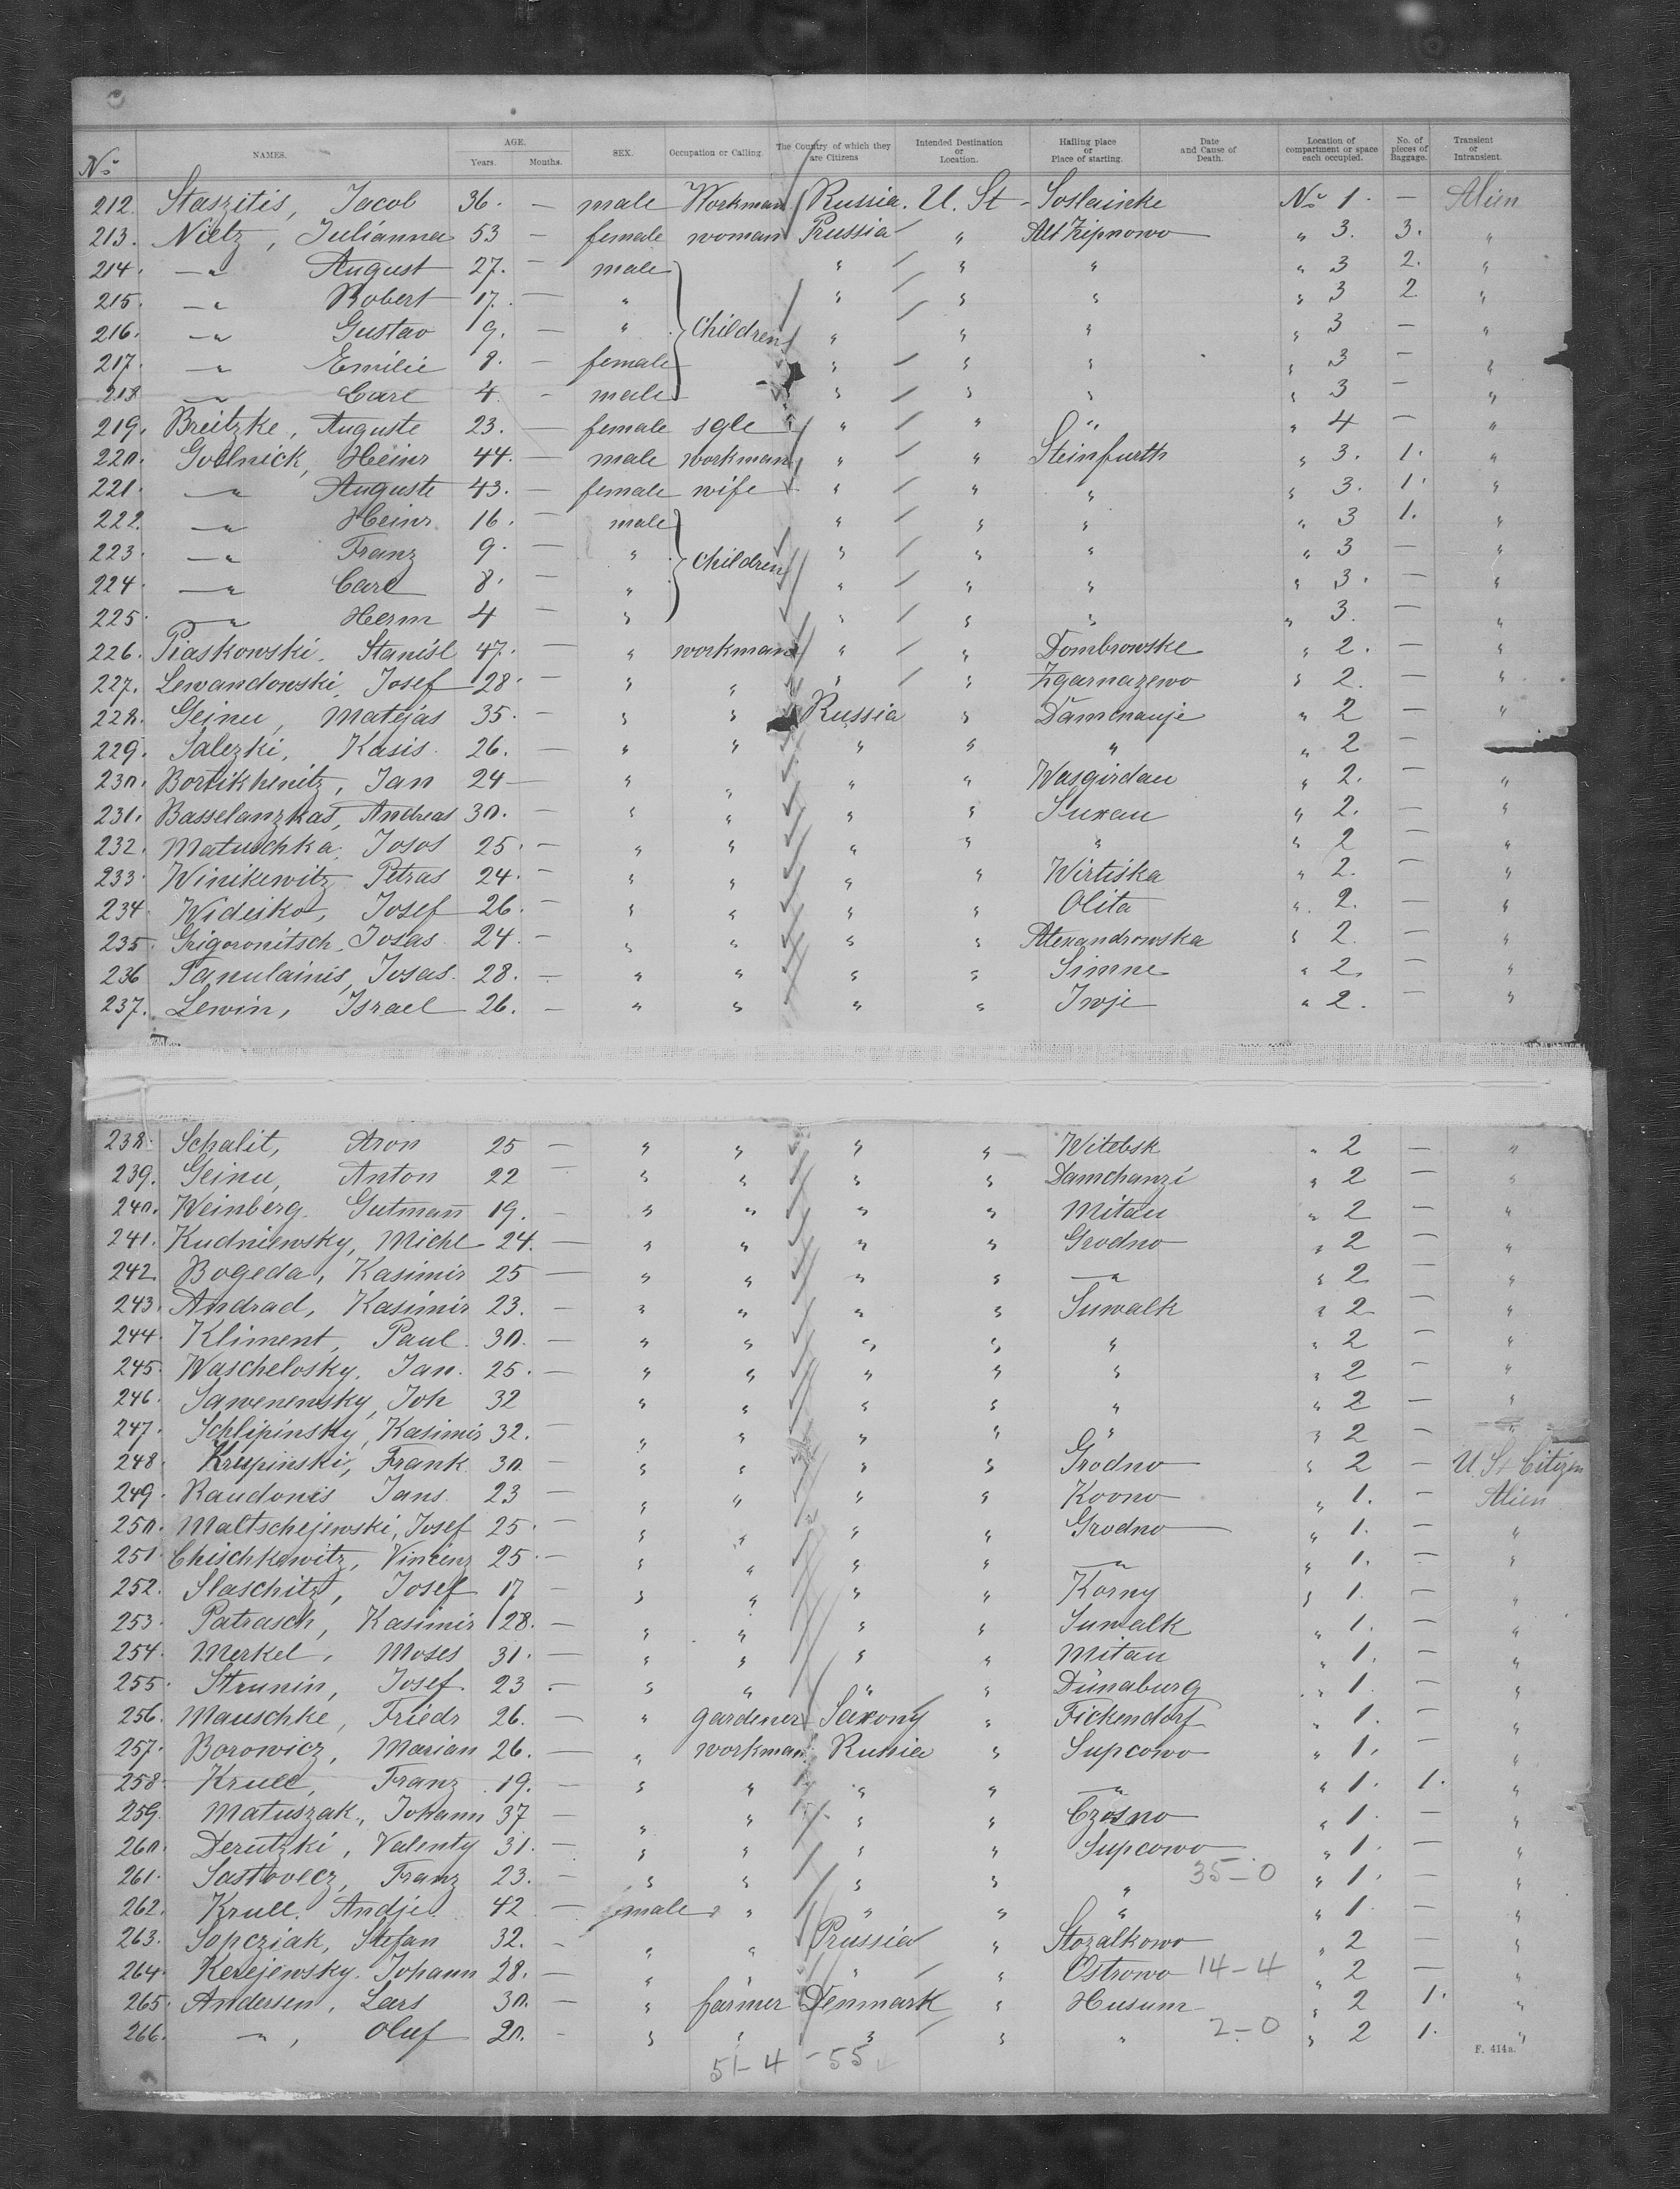 No NAMES. AGE. Years. Months. SEX. Occupation or Calling. The Country of which they are Citizens Intended Destination or Location. Hailing place or Place of starting. Date and Cause of Death. Location of compartment or space each occupied. No. of pieces of Baggage. Transient or Intransient.
212. Staszitis, Jacob 36. — male Workman Russia. U. St - Soslainke No 1. — Alien
213. Nietz, Julianna 53 — female woman Prussia " Alt Zipnowo " 3. 3. "
214. —"— August 27. — male " " " " 3 2. "
215. —"— Robert 17. — " " " " " 3 2. "
216. —"— Gustav 9. — " Children " " " " 3 — "
217. —"— Emilie 8. — female " " " " 3 — "
218 —"— Carl 4. - male " " " " 3 — "
219. Breitzke, Auguste 23. — female sgle " " " " 4 — "
220. Gollnick, Heinr 44. — male workman " " Steinfurth " 3. 1. "
221. —"— Auguste 43. — female wife " " " " 3. 1. "
222. —"— Heinr 16. — male " " " " 3 1. "
223. —"— Franz 9. — " Children " " " " 3 — "
224. —"— Carl 8. — " " " " " 3. — "
225. —"— Herm 4 — " " " " " 3. — "
226. Piaskowski, Stanisl 47. — " workman " " Dombrowske " 2. — "
227. Lewandowski, Josef 28. — " " " " Zgarnazewo " 2. — "
228. Geinu, Matejas 35. — " " Russia " Damenauje " 2 — "
229. Salezki, Kasis. 26. — " " " " " " 2 —
230. Bortikhenitz, Jan 24 — " " " " Wasgirdau " 2. — "
231. Basselanzkas, Andreas 30. — " " " " Suxau " 2. — "
232. Matuschka, Josos 25. — " " " " " " 2 — "
233. Winikewitz Petras 24. — " " " " Wirtiska " 2. — "
234 Wideiko, Josef 26. — " " " " Olita " 2. — "
235. Grigoronitsch, Josas 24. — " " " " Alexandrowska " 2. — "
236 Panulainis, Josas. 28. — " " " " Simne " 2. — "
237. Lewin, Israel 26. — " " " " Iwje " 2. — "
238. Schalit, Aron 25 — " " " " Witebsk " 2 — "
239. Geinu, Anton 22 — " " " " Damchanzi " 2 — "
240. Weinberg. Gutmann 19. — " " " " Mitau " 2 — "
241. Kudniewsky, Michl 24. — " " " " Grodno " 2 — "
242. Bogeda, Kasimir 25 — " " " " —"— " 2 — "
243. Andrad, Kasimir 23. — " " " " Suwalk " 2 — "
244. Kliment, Paul. 30. — " " " " " " 2 — "
245. Waschelosky, Jan. 25. — " " " " " " 2 — "
246. Sawenensky, Joh 32 " " " " " " 2 — "
247. Schlipinsky, Kasimir 32. — " " " " " " 2 — "
248. Krupinski, Frank 30 — " " " " Grodno " 2 — U. St. Citizen
249. Raudonis Jans. 23 — " " " " Kovno " 1. — Alien
250. Maltschejewski, Josef 25. — " " " " Grodno " 1. — "
251. Chischkewitz, Vincenz 25. — " " " " —"— " 1. — "
252. Slaschitz, Josef 17 — " " " " Korny " 1. — "
253. Patrasch, Kasimir 28. — " " " " Suwalk " 1. — "
254. Merkel, Moses 31. — " " " " Mitau " 1. — "
255. Strunin, Josef. 23. — " " " " Dünaburg " 1. — "
256. Mauschke, Friedr 26. — " gardener Saxony " Fickendorf " 1. — "
257. Borowicz, Marian 26. — " workman Russia " Supcowo " 1. — "
258. Krull, Franz 19. — " " " " —"— " 1. 1. "
259. Matuszak, Johann 37 — " " " " Czosno " 1. — "
260. Derutzki, Valenty 31. — " " " " Supcowo " 1. — "
261. Sastovecz, Franz 23. — " " " " " 35-0 " 1. — "
262. Krull, Andje. 42 — male " " " " " 1. — "
263. Sopcziak, Stefan 32. - " " Prussia " Stozalkowo " 2 — "
264. Kerejewsky. Johann 28. — " " " " Ostrowo 14-4 " 2 — "
265. Andersen, Lars 30. — " farmer Denmark " Husum " 2 1. "
266. —"—, Oluf 20. - " " " " " 2-0 " 2 1. "
51-4 - 55
F. 414a.